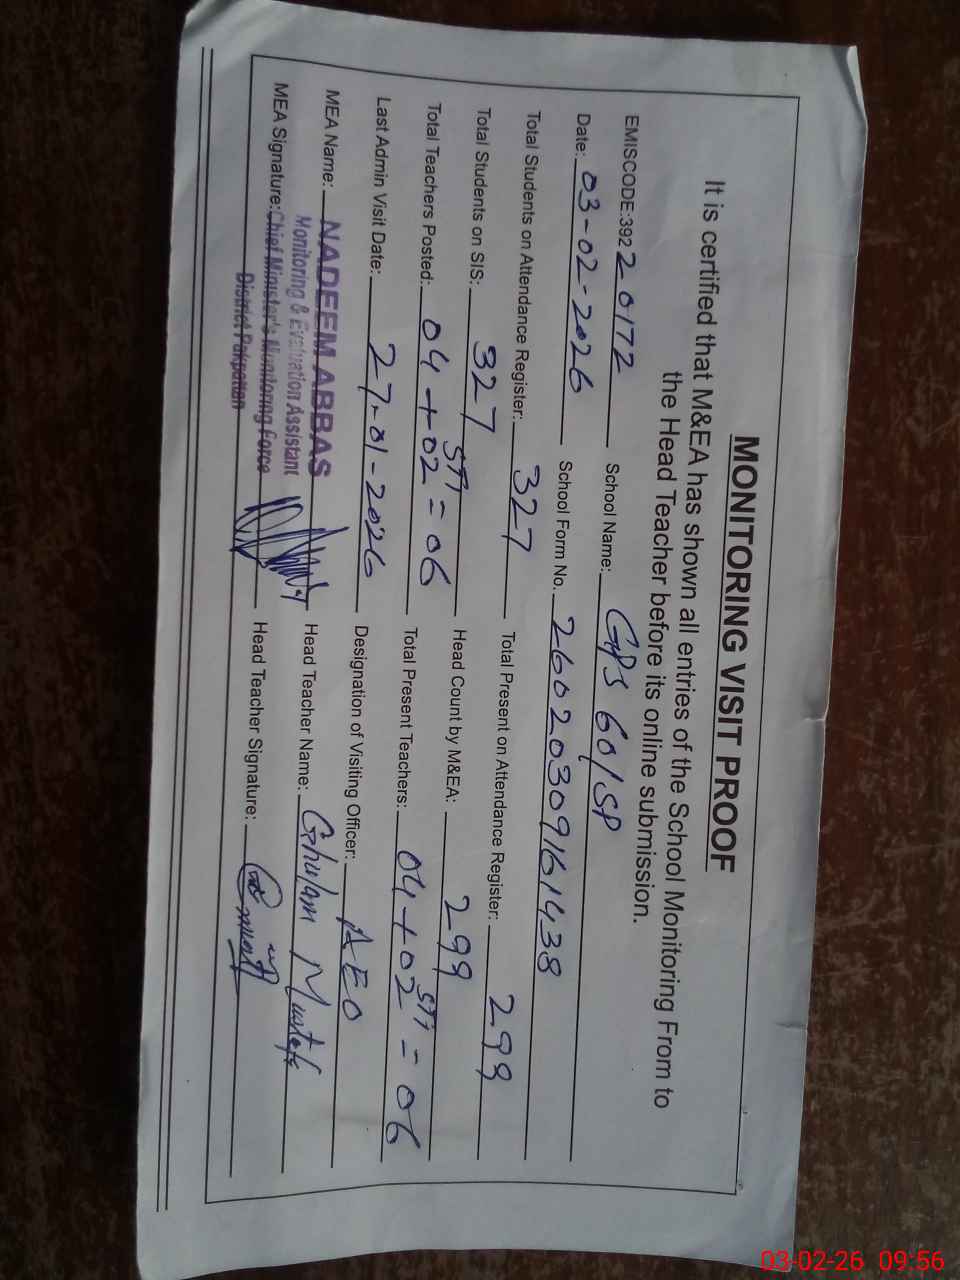 MONITORING VISIT PROOF
It is certified that M&EA has shown all entries of the School Monitoring From to
the Head Teacher before its online submission.
EMISCODE:392 20172 School Name: GPS 60/SP
Date: 03-02-2026 School Form No. 26020309161438
Total Students on Attendance Register: 327 Total Present on Attendance Register: 299
Total Students on SIS: 327 Head Count by M&EA: 299
Total Teachers Posted: 04+02 STI=06 Total Present Teachers: 04+02 STI=06
Last Admin Visit Date: 27-01-2026 Designation of Visiting Officer: AEO
MEA Name: NADEEM ABBAS Head Teacher Name: Ghulam Mustafa
Monitoring & Evaluation Assistant
MEA Signature: Chief Minister's Monitoring Force Head Teacher Signature:
District Pakpattan
03-02-26 09:56